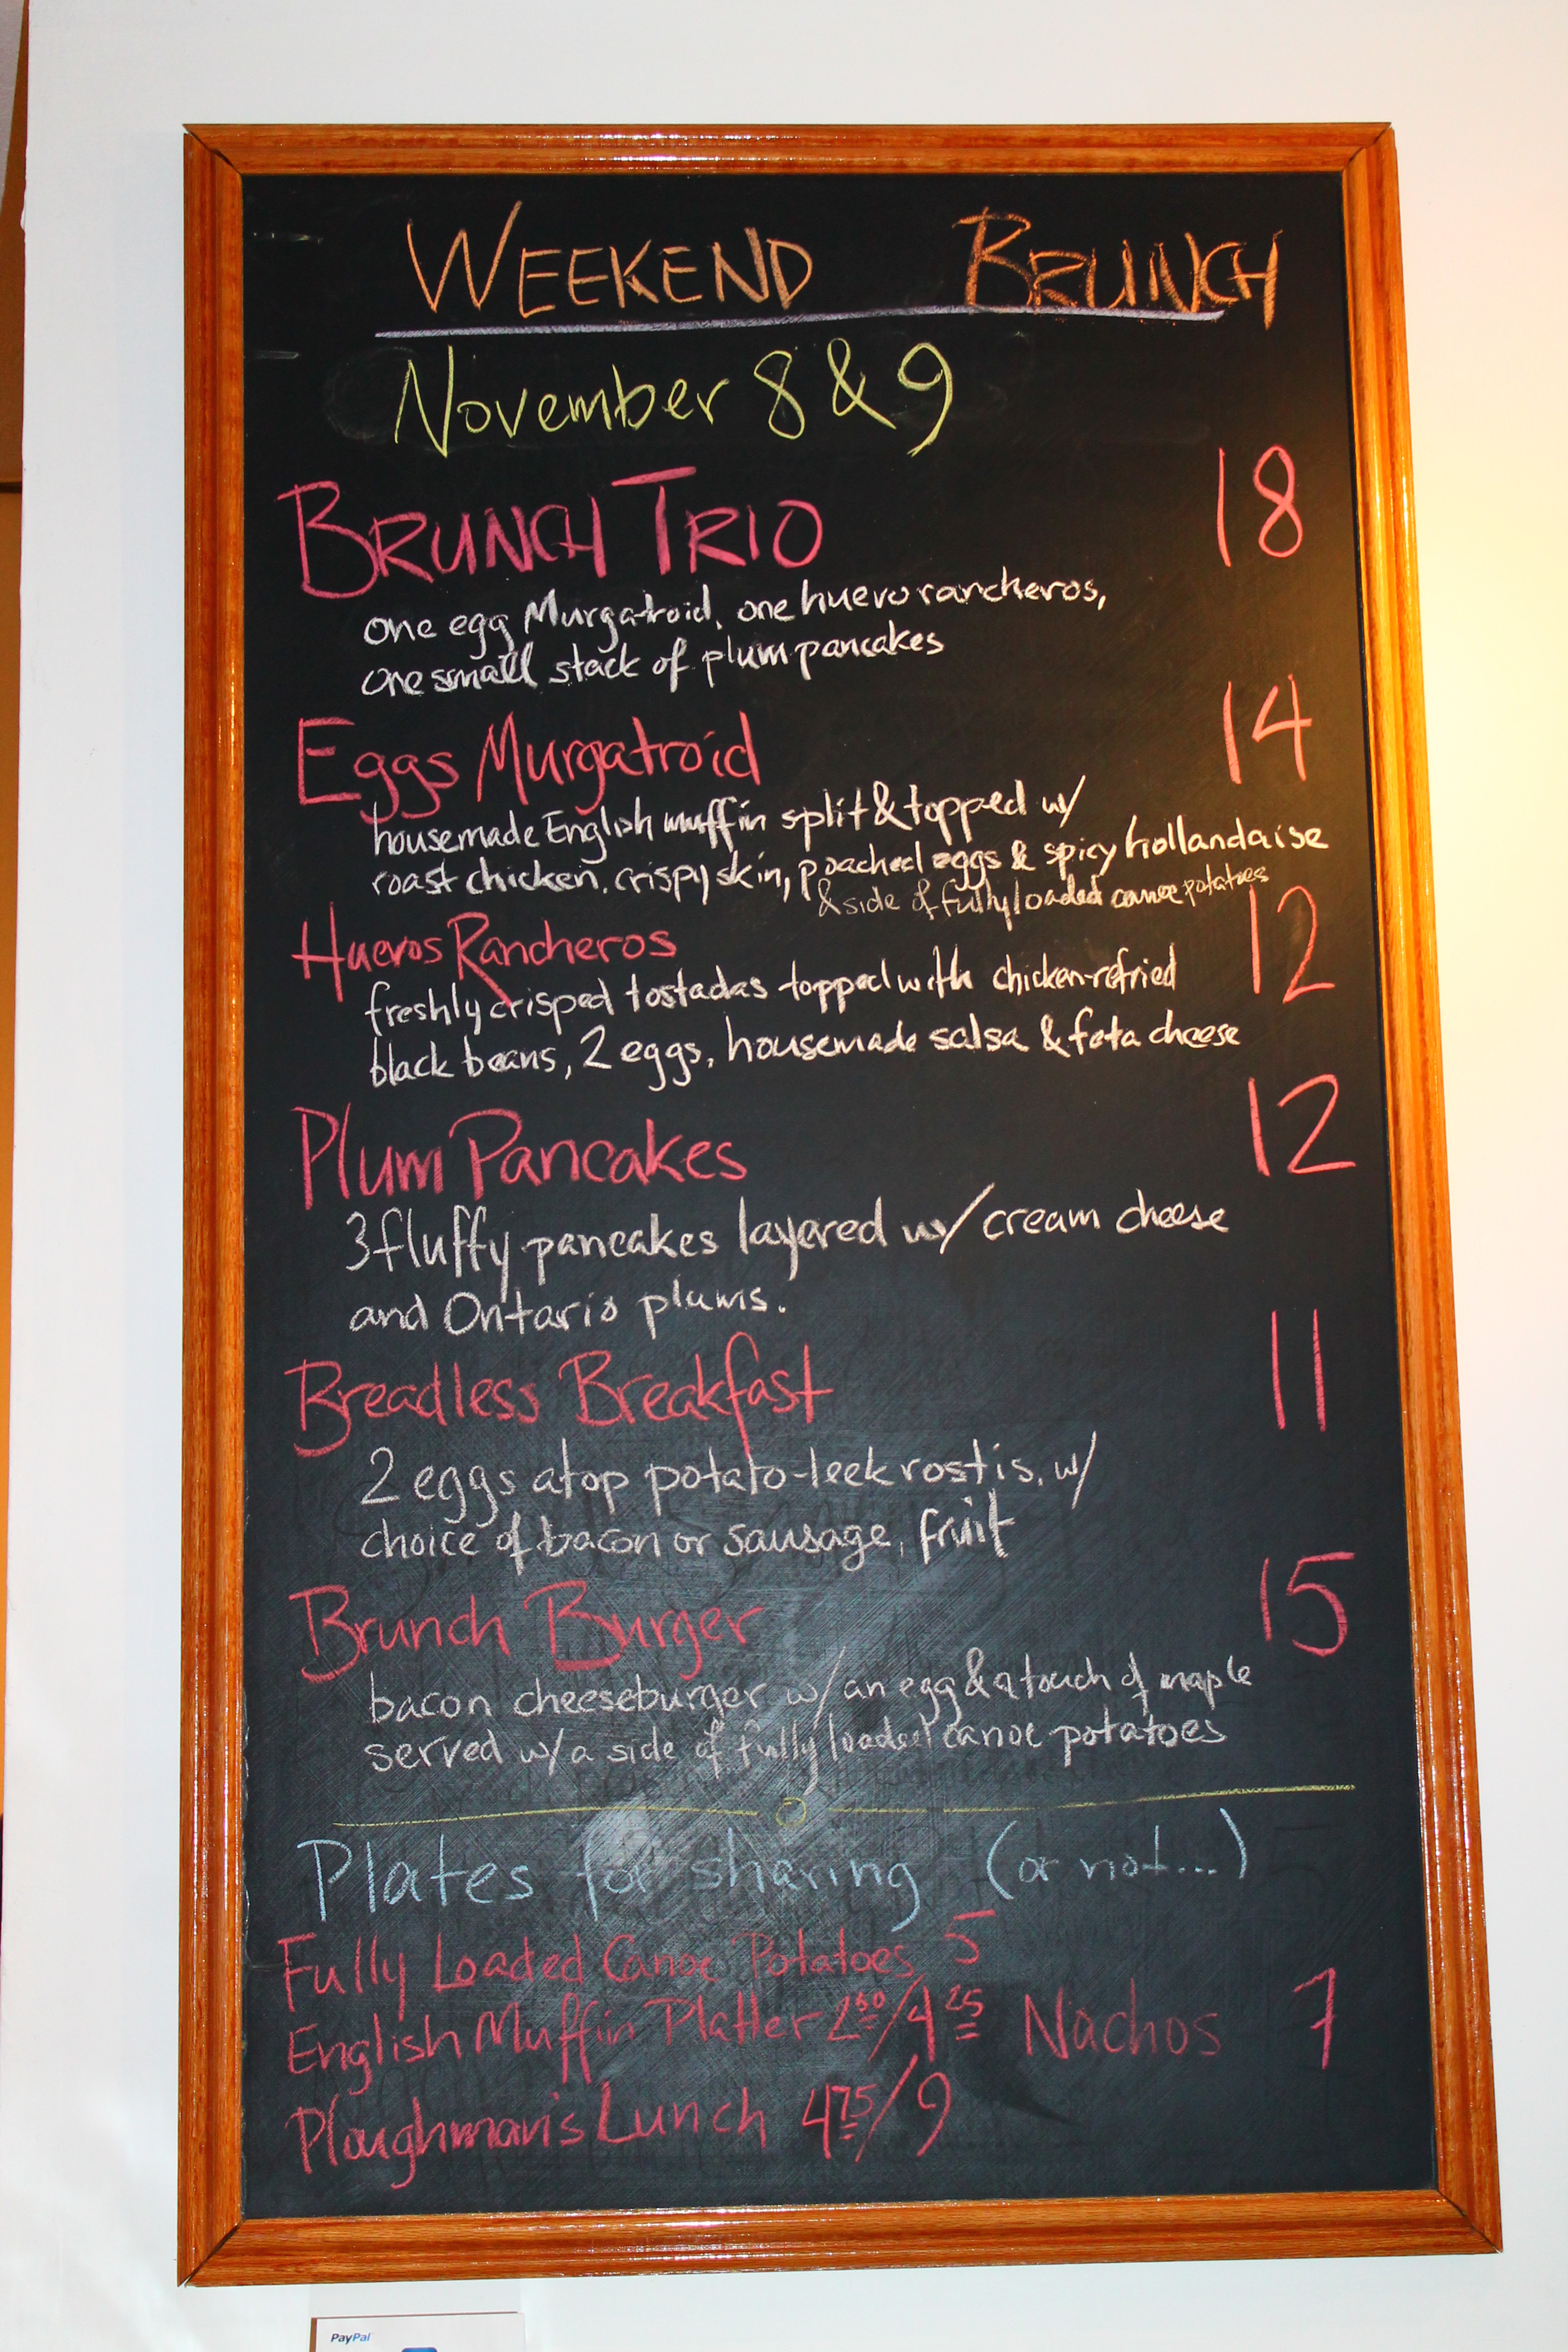 WEEKEND BRUNCH
November 8 & 9
BRUNCH TRIO 18
one egg Murgatroid, one huevo rancheros,
one small stack of plum pancakes
Eggs Murgatroid 14
housemade English muffin split & topped w/
roast chicken, crispy skin, poached eggs & spicy hollandaise
& side of fully loaded canoe potatoes
Huevos Rancheros 12
freshly crisped tostadas topped with chicken-refried
black beans, 2 eggs, housemade salsa & feta cheese
Plum Pancakes 12
3 fluffy pancakes layered w/ cream cheese
and Ontario plums.
Breadless Breakfast 11
2 eggs atop potato-leek rostis, w/
choice of bacon or sausage, fruit
Brunch Burger 15
bacon cheeseburger w/ an egg & a touch of maple
served w/ a side of fully loaded canoe potatoes
Plates for sharing (or not...)
Fully Loaded Canoe Potatoes 5
English Muffin Platter 2 50/4 25 Nachos 7
Ploughman's Lunch 4 75/9
PayPal